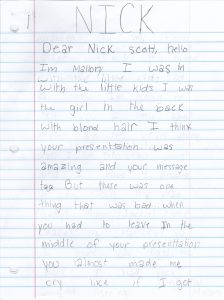 NICK
Dear Nick scott, hello
Im Mallory I was in
with the little kids I was
the girl in the back
with blond hair I think
your presenttation was
amazing and your message
too But there was one
thing that was bad when
you had to leave In the
middle of your presenttation
you almost made me
cry like if I get